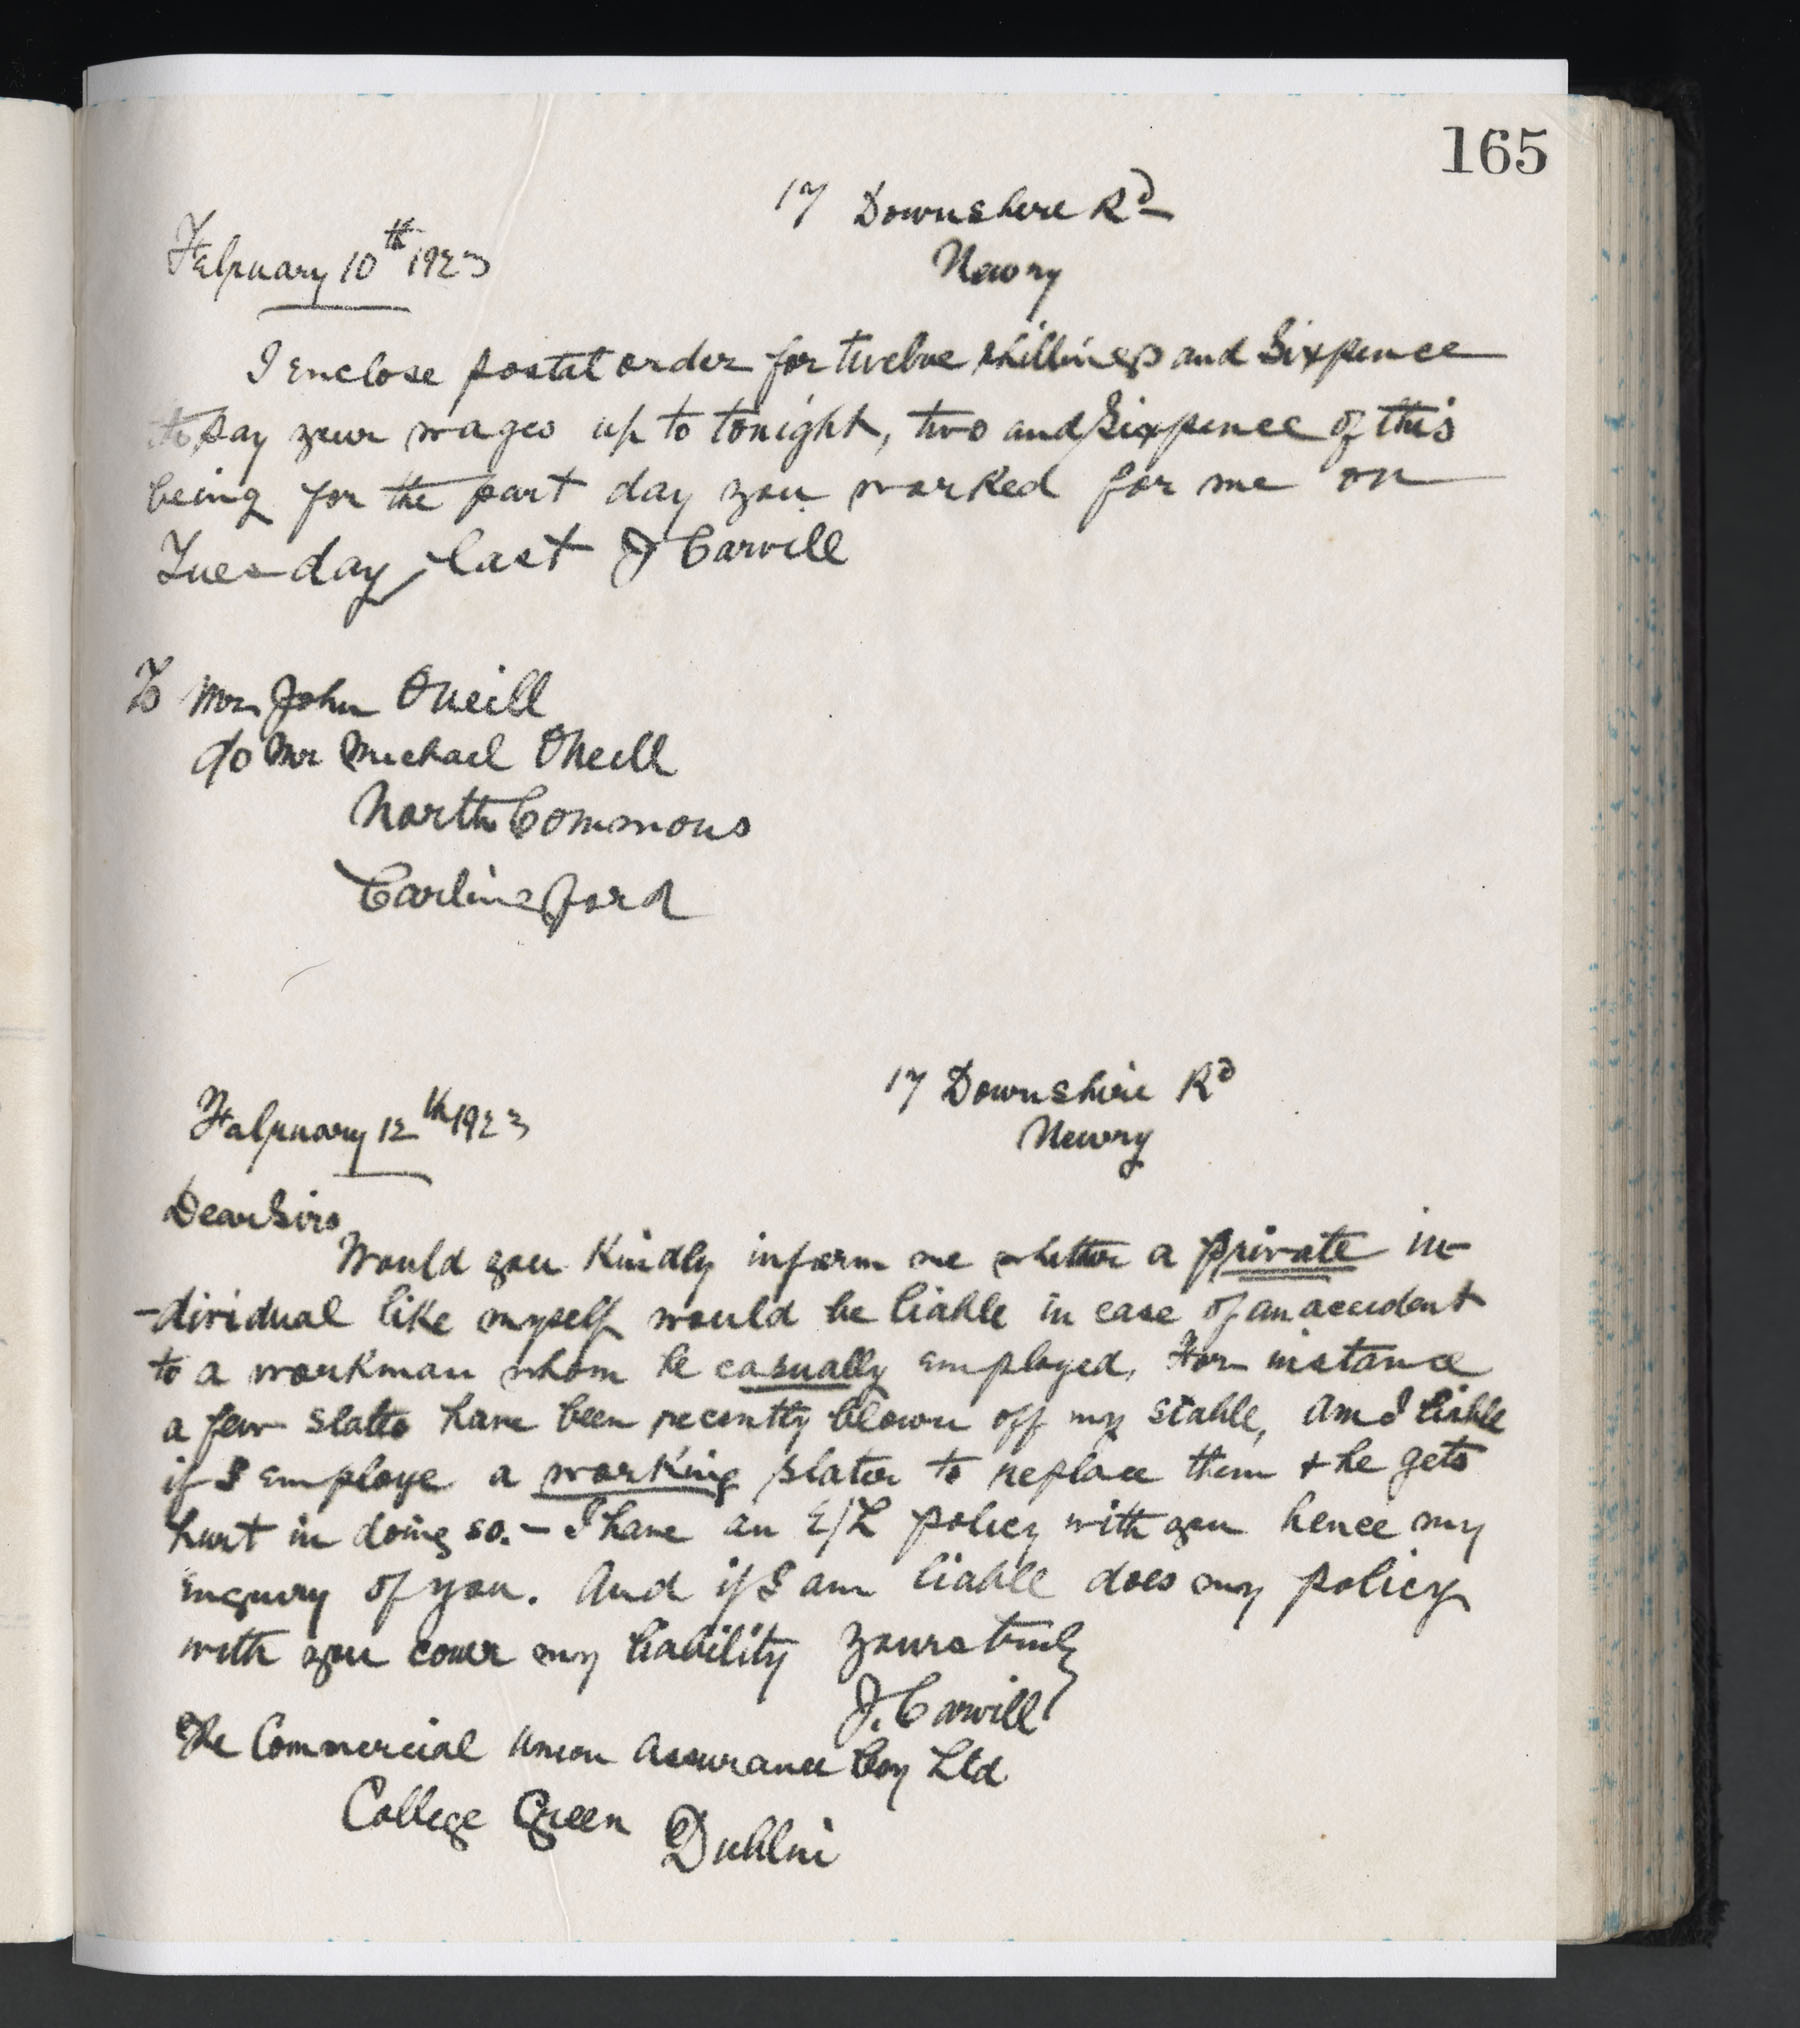 165
17 Downshire Rd
February 10th 1923
Newry
I enclose postal order for twelve shillings and Sixpence
to pay your wages up to tonight, two and Sixpence of this
being for the part day you worked for me on
Tuesday last J Carvill
To Mr John ONeill
c/o Mr Michael ONeill
North Commons
Carlingford
17 Downshire Rd
February 12th 1923
Newry
Dear Sirs
Would you Kindly inform me whether a private in-
-dividual like myself would be liable in case of an accident
to a workman whom he casually employed. For instance
a few slates have been recently blown off my stable, am I liable
if I employe a working slater to replace them + he gets
hurt in doing so. - I have an E/L policy with you hence my
enquiry of you. And if I am liable does my policy
with you cover my liability yours truly
J. Carvill
The Commercial Union Assurance Coy Ltd
College Green
Dublin